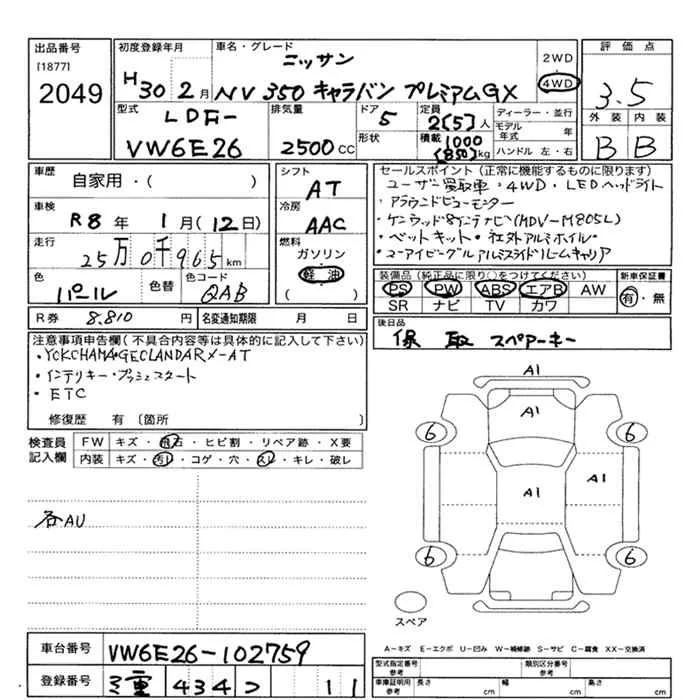 出品番号
[1877]
2049
初度登録年月
H30 2月
車名・グレード
ニッサン
NV350 キャラバン プレミアムGX
2WD
4WD
評価点
3.5
外装 内装
B B
型式
LDF-
VW6E26
排気量
2500 CC
ドア
5
形状
定員
2[5]人
積載 1000
[850]kg
ディーラー・並行
モデル年式 年
ハンドル 左・右
車歴
自家用・( )
車検
R8年 1月(12日)
走行
25万0千965 km
色
パール
色替
色コード
QAB
シフト
AT
冷房
AAC
燃料
ガソリン
軽油
( )
セールスポイント(正常に機能するものに限ります)
ユーザー買取車・4WD・LEDヘッドライト
・アラウンドビューモニター
・ケンウッド8インチナビ(MDV-M805L)
・ベットキット・社外アルミホイル・
・ユーアイビークルアルミスライドルームキャリア
装備品(純正品に限り○をつけてください)
PS PW ABS エアB AW
SR ナビ TV カワ
新車保証書
有・無
R券 8,810 円
名変通知期限 月 日
後日品
保 取 スペアーキー
注意事項申告欄(不具合内容等は具体的に記入して下さい)
・YOKOHAMA・GEOLANDAR X-AT
・インテリキー・プッシュスタート
・ETC
修復歴 有〔箇所 〕
検査員記入欄
FW キズ・飛石・ヒビ割・リペア跡・X要
内装 キズ・汚レ・コゲ・穴・スレ・キレ・破レ
各AU
A1
A1
6 6
A1 A1
6 6
スペア
A-キズ E-エクボ U-凹み W-補修跡 S-サビ C-腐食 XX-交換済
車台番号 VW6E26-102759
登録番号 三重 434 つ 11
型式指定番号 参考
類別区分番号 参考
車庫証明用 参考 長さ cm 幅 cm 高さ cm